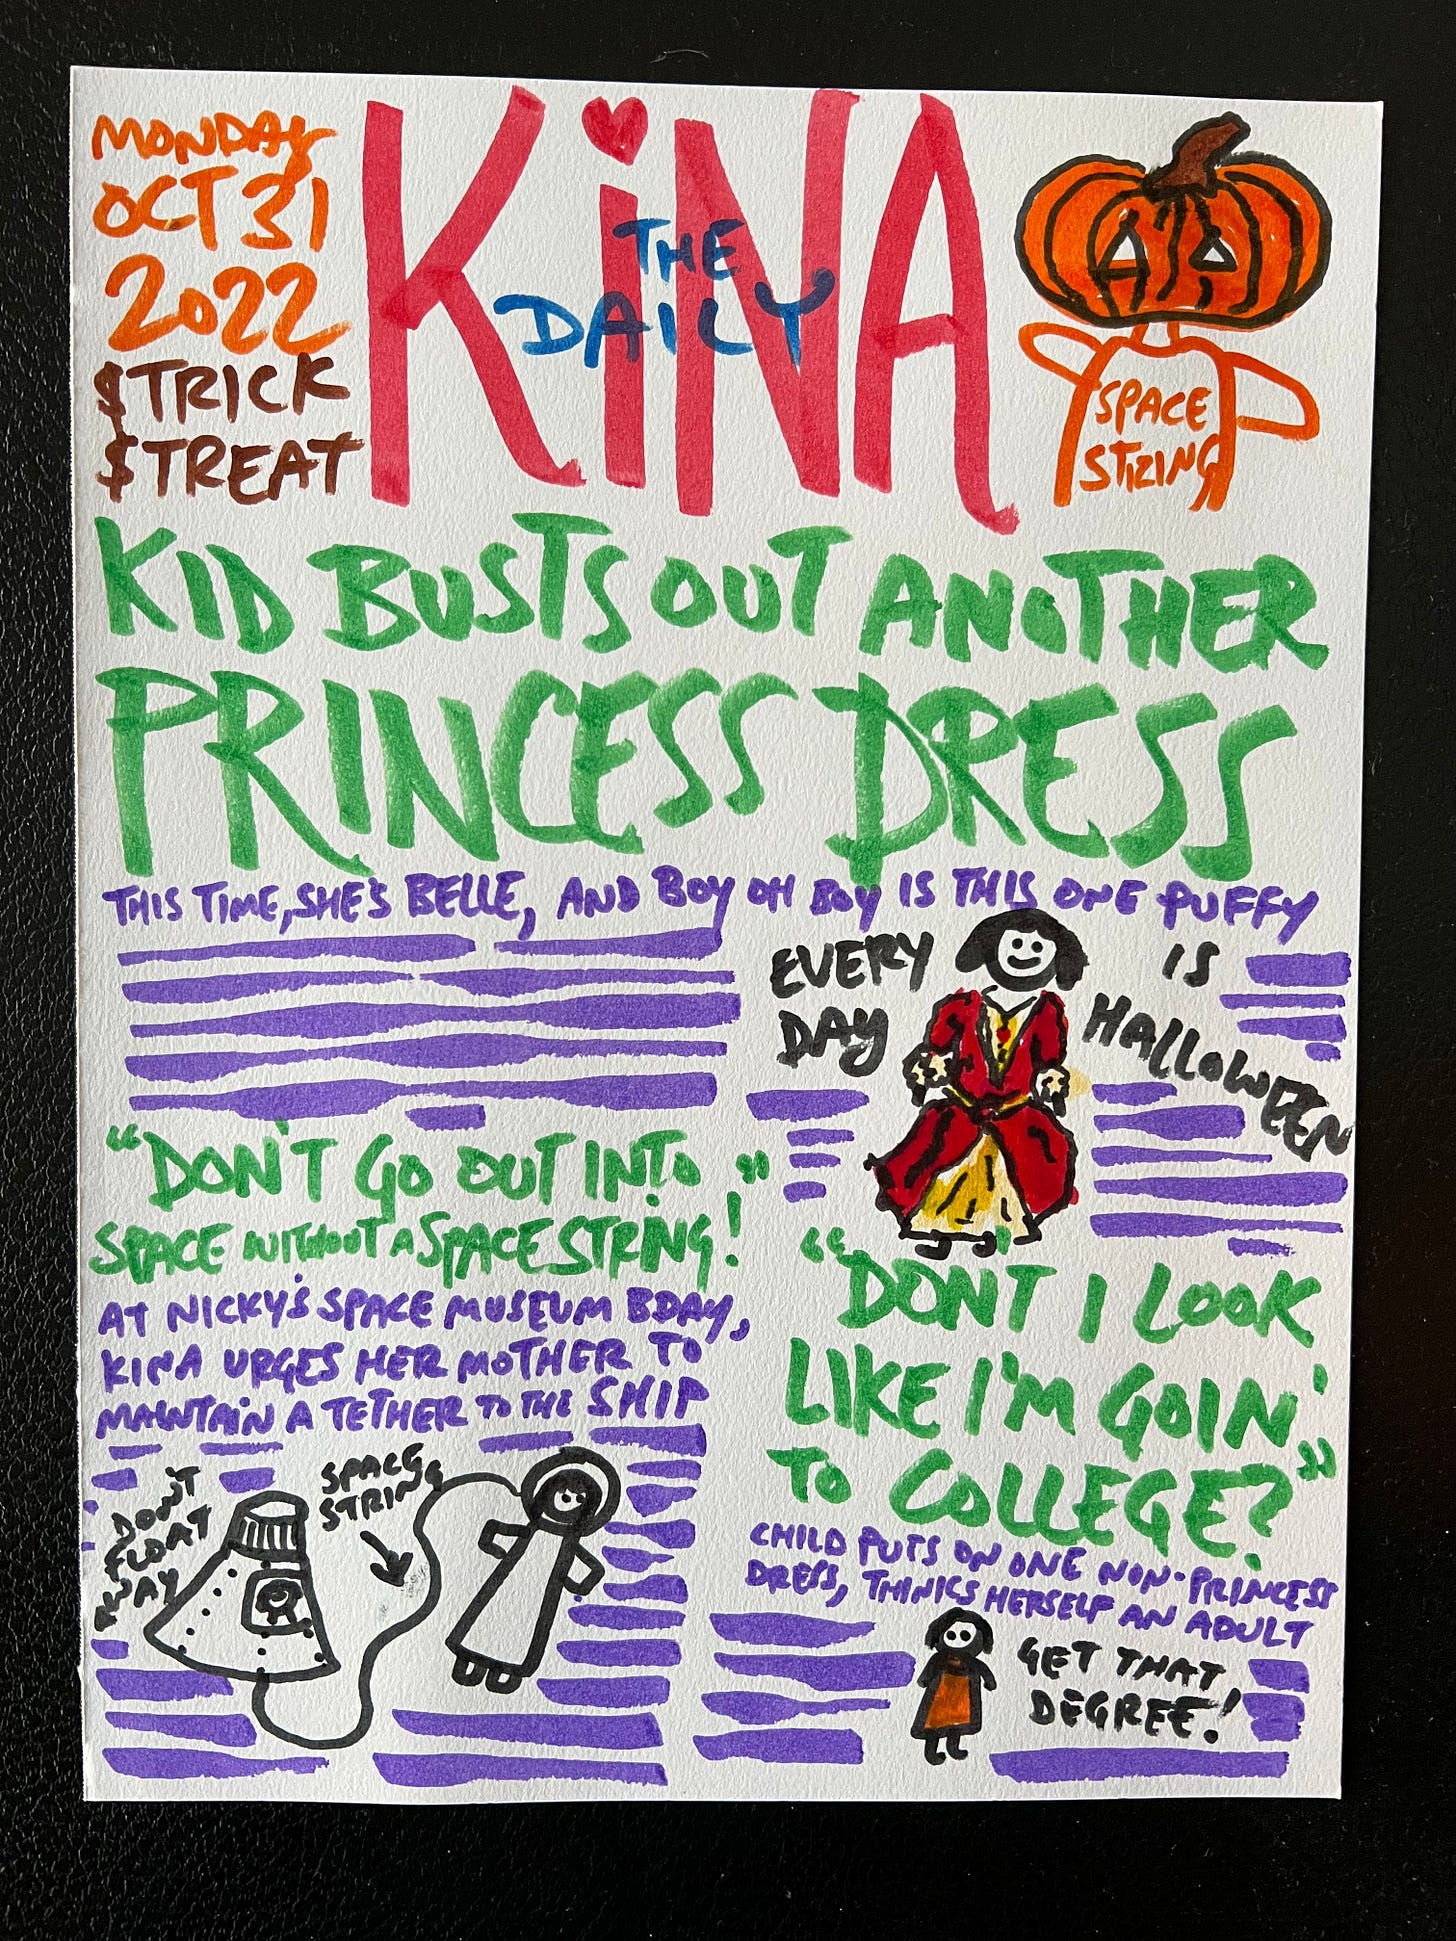 MONDAY
OCT 31
2022
$TRICK
$TREAT
KiNA
THE
DAILY
SPACE
STIZING
KID BUSTS OUT ANOTHER
PRINCESS DRESS
THIS TIME, SHE'S BELLE, AND BOY OH BOY IS THIS ONE PUFFY
EVERY
DAY
IS
HALLOWEEN
"DON'T GO OUT INTO
SPACE WITHOUT A SPACE STRING!"
AT NICKY'S SPACE MUSEUM BDAY,
KINA URGES HER MOTHER TO
MAINTAIN A TETHER TO THE SHIP
DON'T
FLOAT
WAY
SPACE
STRING
"DON'T I LOOK
LIKE I'M GOIN'
TO COLLEGE?"
CHILD PUTS ON ONE NON-PRINCESS
DRESS, THINKS HERSELF AN ADULT
GET THAT
DEGREE!